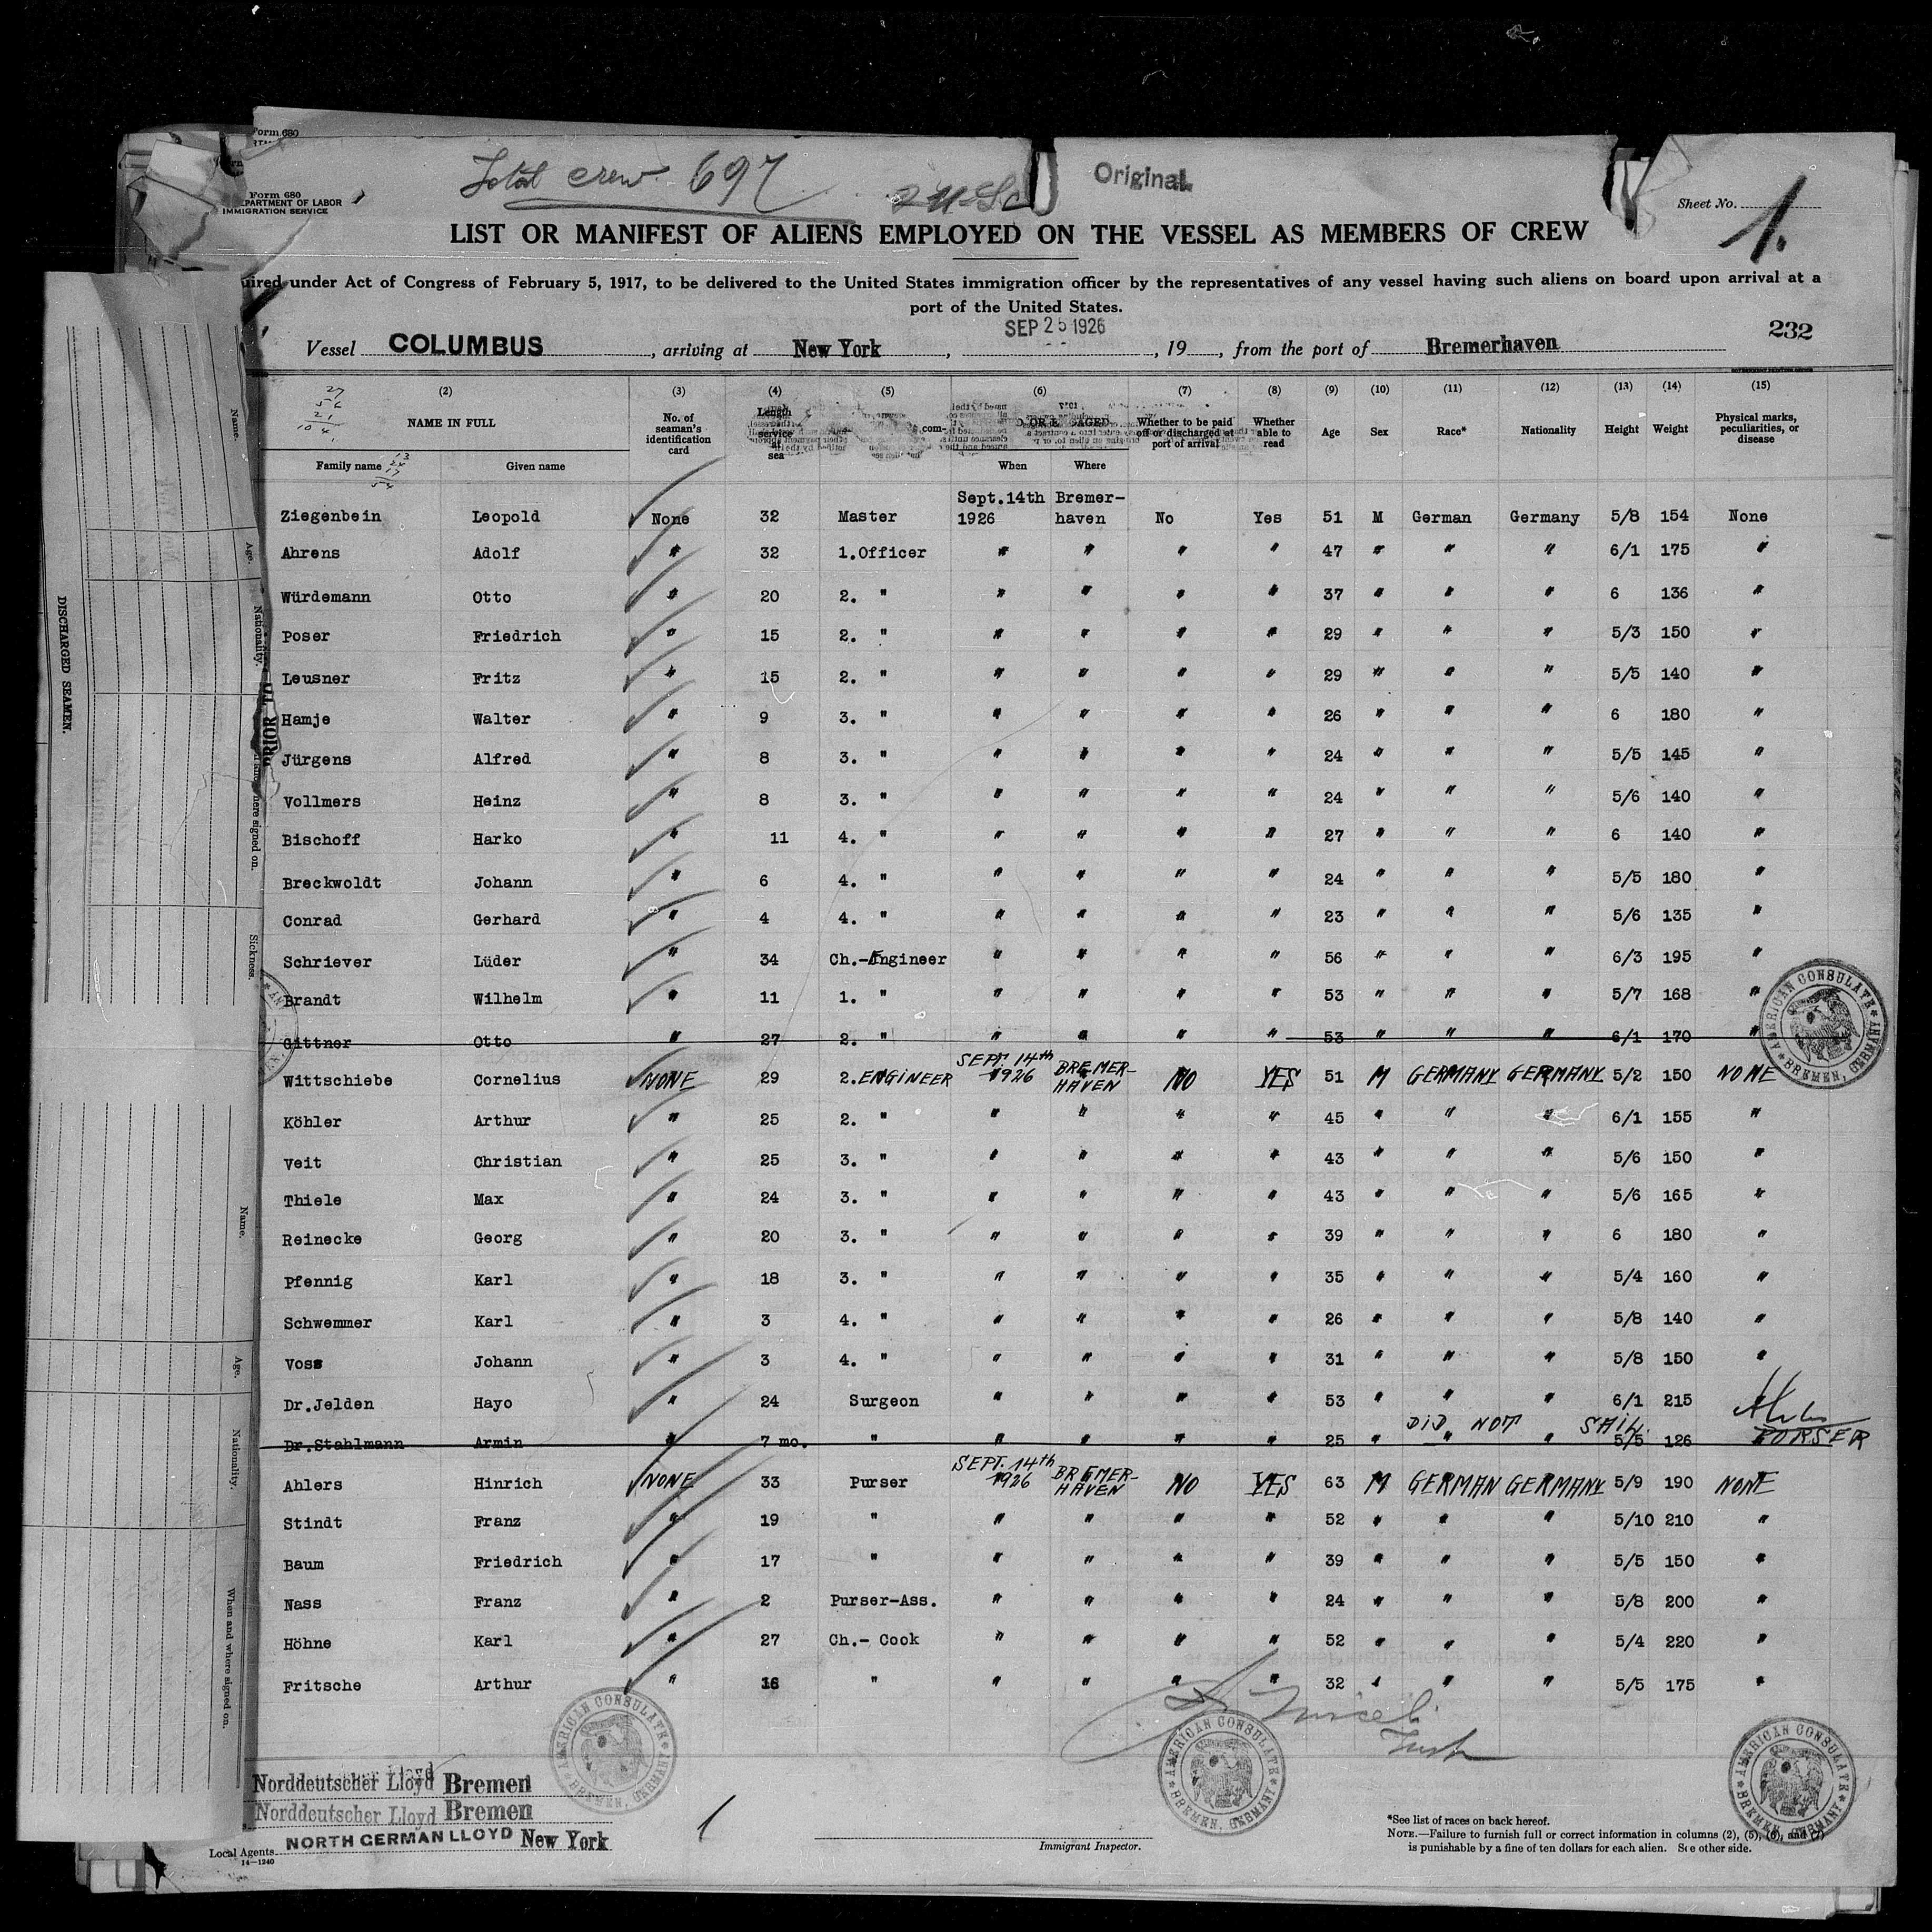 Form 680
Total crew 697
Original
Form 680
DEPARTMENT OF LABOR
IMMIGRATION SERVICE
Sheet No. 1.
LIST OR MANIFEST OF ALIENS EMPLOYED ON THE VESSEL AS MEMBERS OF CREW
uired under Act of Congress of February 5, 1917, to be delivered to the United States immigration officer by the representatives of any vessel having such aliens on board upon arrival at a
port of the United States.
Vessel COLUMBUS, arriving at New York, SEP 25 1926, 19, from the port of Bremerhaven
232
(2) (3) (4) (5) (6) (7) (8) (9) (10) (11) (12) (13) (14) (15)
NAME IN FULL No. of seaman's identification card Length service at sea Whether to be paid off or discharged at port of arrival Whether able to read Age Sex Race* Nationality Height Weight Physical marks, peculiarities, or disease
Family name Given name When Where
Ziegenbein Leopold None 32 Master Sept.14th 1926 Bremer-haven No Yes 51 M German Germany 5/8 154 None
Ahrens Adolf " 32 1.Officer " " " " 47 " " " 6/1 175 "
Würdemann Otto " 20 2. " " " " " 37 " " " 6 136 "
Poser Friedrich " 15 2. " " " " " 29 " " " 5/3 150 "
Leusner Fritz " 15 2. " " " " " 29 " " " 5/5 140 "
Hamje Walter " 9 3. " " " " " 26 " " " 6 180 "
Jürgens Alfred " 8 3. " " " " " 24 " " " 5/5 145 "
Vollmers Heinz " 8 3. " " " " " 24 " " " 5/6 140 "
Bischoff Harko " 11 4. " " " " " 27 " " " 6 140 "
Breckwoldt Johann " 6 4. " " " " " 24 " " " 5/5 180 "
Conrad Gerhard " 4 4. " " " " " 23 " " " 5/6 135 "
Schriever Lüder " 34 Ch.-Engineer " " " " 56 " " " 6/3 195 "
Brandt Wilhelm " 11 1. " " " " " 53 " " " 5/7 168 "
Gittner Otto " 27 2. " " " " " 53 " " " 6/1 170 "
Wittschiebe Cornelius NONE 29 2.ENGINEER SEPT. 14th 1926 BREMER-HAVEN NO YES 51 M GERMANY GERMANY 5/2 150 NONE
Köhler Arthur " 25 2. " " " " " 45 " " " 6/1 155 "
Veit Christian " 25 3. " " " " " 43 " " " 5/6 150 "
Thiele Max " 24 3. " " " " " 43 " " " 5/6 165 "
Reinecke Georg " 20 3. " " " " " 39 " " " 6 180 "
Pfennig Karl " 18 3. " " " " " 35 " " " 5/4 160 "
Schwemmer Karl " 3 4. " " " " " 26 " " " 5/8 140 "
Voss Johann " 3 4. " " " " " 31 " " " 5/8 150 "
Dr.Jelden Hayo " 24 Surgeon " " " " 53 " " " 6/1 215
DID NOT SAIL
Dr.Stahlmann Armin " 7 mo. " " " " " 25 " " " 5/5 126 PURSER
Ahlers Hinrich NONE 33 Purser SEPT. 14th 1926 BREMER-HAVEN NO YES 63 M GERMAN GERMANY 5/9 190 NONE
Stindt Franz " 19 " " " " " 52 " " " 5/10 210 "
Baum Friedrich " 17 " " " " " 39 " " " 5/5 150 "
Nass Franz " 2 Purser-Ass. " " " " 24 " " " 5/8 200 "
Höhne Karl " 27 Ch.- Cook " " " " 52 " " " 5/4 220 "
Fritsche Arthur " 16 " " " " " 32 " " " 5/5 175 "
AMERICAN CONSULATE BREMEN, GERMANY
AMERICAN CONSULATE BREMEN, GERMANY
AMERICAN CONSULATE BREMEN, GERMANY
AMERICAN CONSULATE BREMEN, GERMANY
Norddeutscher Lloyd Bremen
Norddeutscher Lloyd Bremen
Local Agents NORTH GERMAN LLOYD New York
14-1240
1
Immigrant Inspector.
*See list of races on back hereof.
NOTE.—Failure to furnish full or correct information in columns (2), (5), (6), and (7)
is punishable by a fine of ten dollars for each alien. See other side.
DISCHARGED SEAMEN.
Name.
Age.
Nationality.
PRIOR TO
where signed on.
Sickness.
Name.
Age.
Nationality.
When and where signed on.